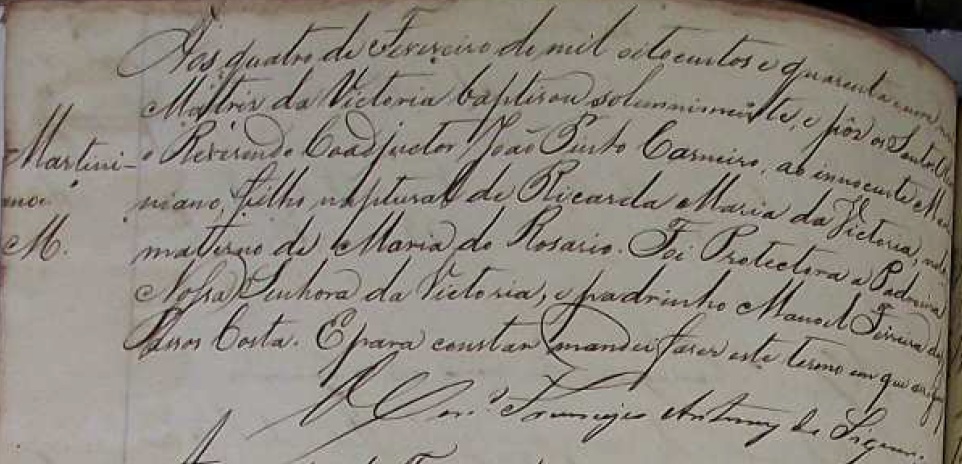 Aos quatro de Fevereiro de mil oitocentos e quarenta e um
Matriz da Victoria baptisou solemnimente, e pôs os Santos Oleos
Martini- o Reverendo Coadjuctor João Pinto Carneiro, ao innocente Marti
ano. niano, filho naptural de Ricarda Maria da Victoria, neto
M. materno de Maria do Rosario. Foi Protectora a Padroeira
Nossa Senhora da Victoria, e padrinho Manoel Ferreira
Costa. E para constar mandei faser este termo em que assignei
Francisco Antonio de